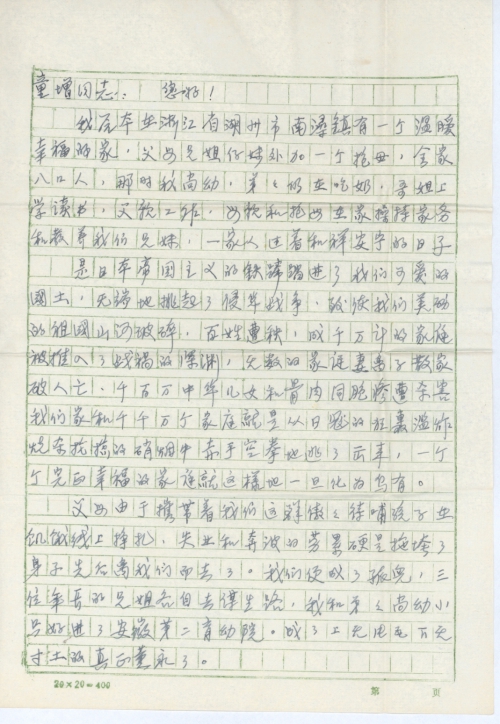 童增同志: 您好!
我原本在浙江省湖州市南浔镇有一个温暖
幸福的家,父母兄姐仔妹外加一个祖母,全家
八口人,那时我尚幼,弟弟仍在吃奶,哥姐上
学读书,父亲工作,母亲和祖母在家操持家务
和教养我们兄妹,一家人过着和祥安宁的日子
是日本帝国主义的铁蹄踏进了我们可爱的
国土,无端地挑起了侵华战争,致使我们美丽
的祖国山河破碎,百姓遭秧,成千万计的家庭
被推入了战祸的深渊,无数的家庭妻离子散家
破人亡。千百万中华儿女和骨肉同胞惨遭杀害
我们家和千千万个家庭就是从日寇的狂轰滥炸
烧杀抢掠的硝烟中赤手空拳地逃了出来,一个
个完的幸福的家庭就这样地一旦化为乌有。
父母由于携带着我们这群嗷嗷待哺孩子在
饥饿线上挣扎,失业和奔波的劳累硬是拖垮了
身子先后离我们而去了。我们便成了孤儿,三
位年长的兄姐各自去谋生路,我和弟弟尚幼小
只好进了安徽第二育幼院。成了上无片瓦下无
寸土的真正熏礼了。
20×20=400 第 页